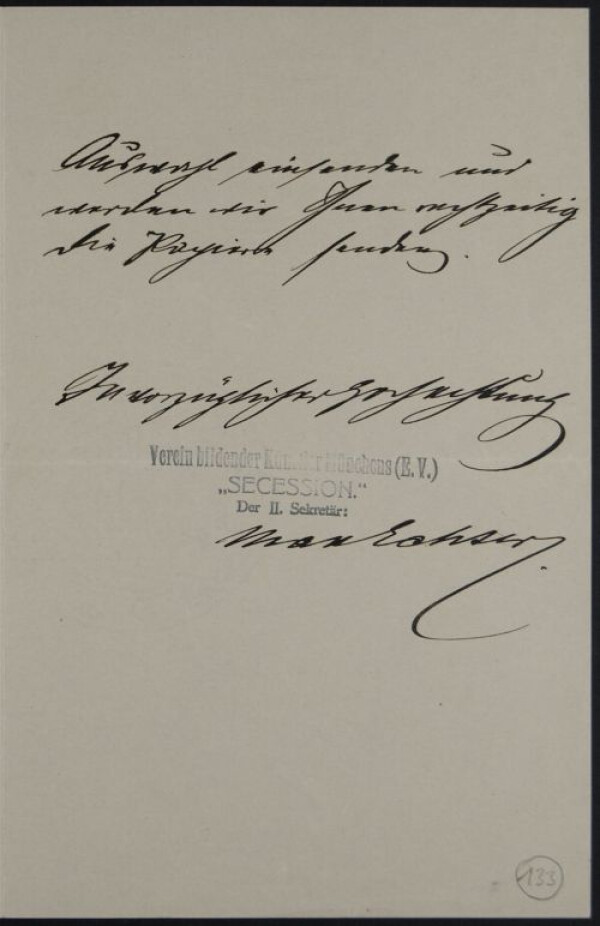 Auswahl einsenden und
werden wir Ihnen rechtzeitig
die Papiere senden.
In vorzüglicher Hochachtung
Verein bildender Künstler Münchens (E.V.)
„SECESSION."
Der II. Sekretär:
Max
133